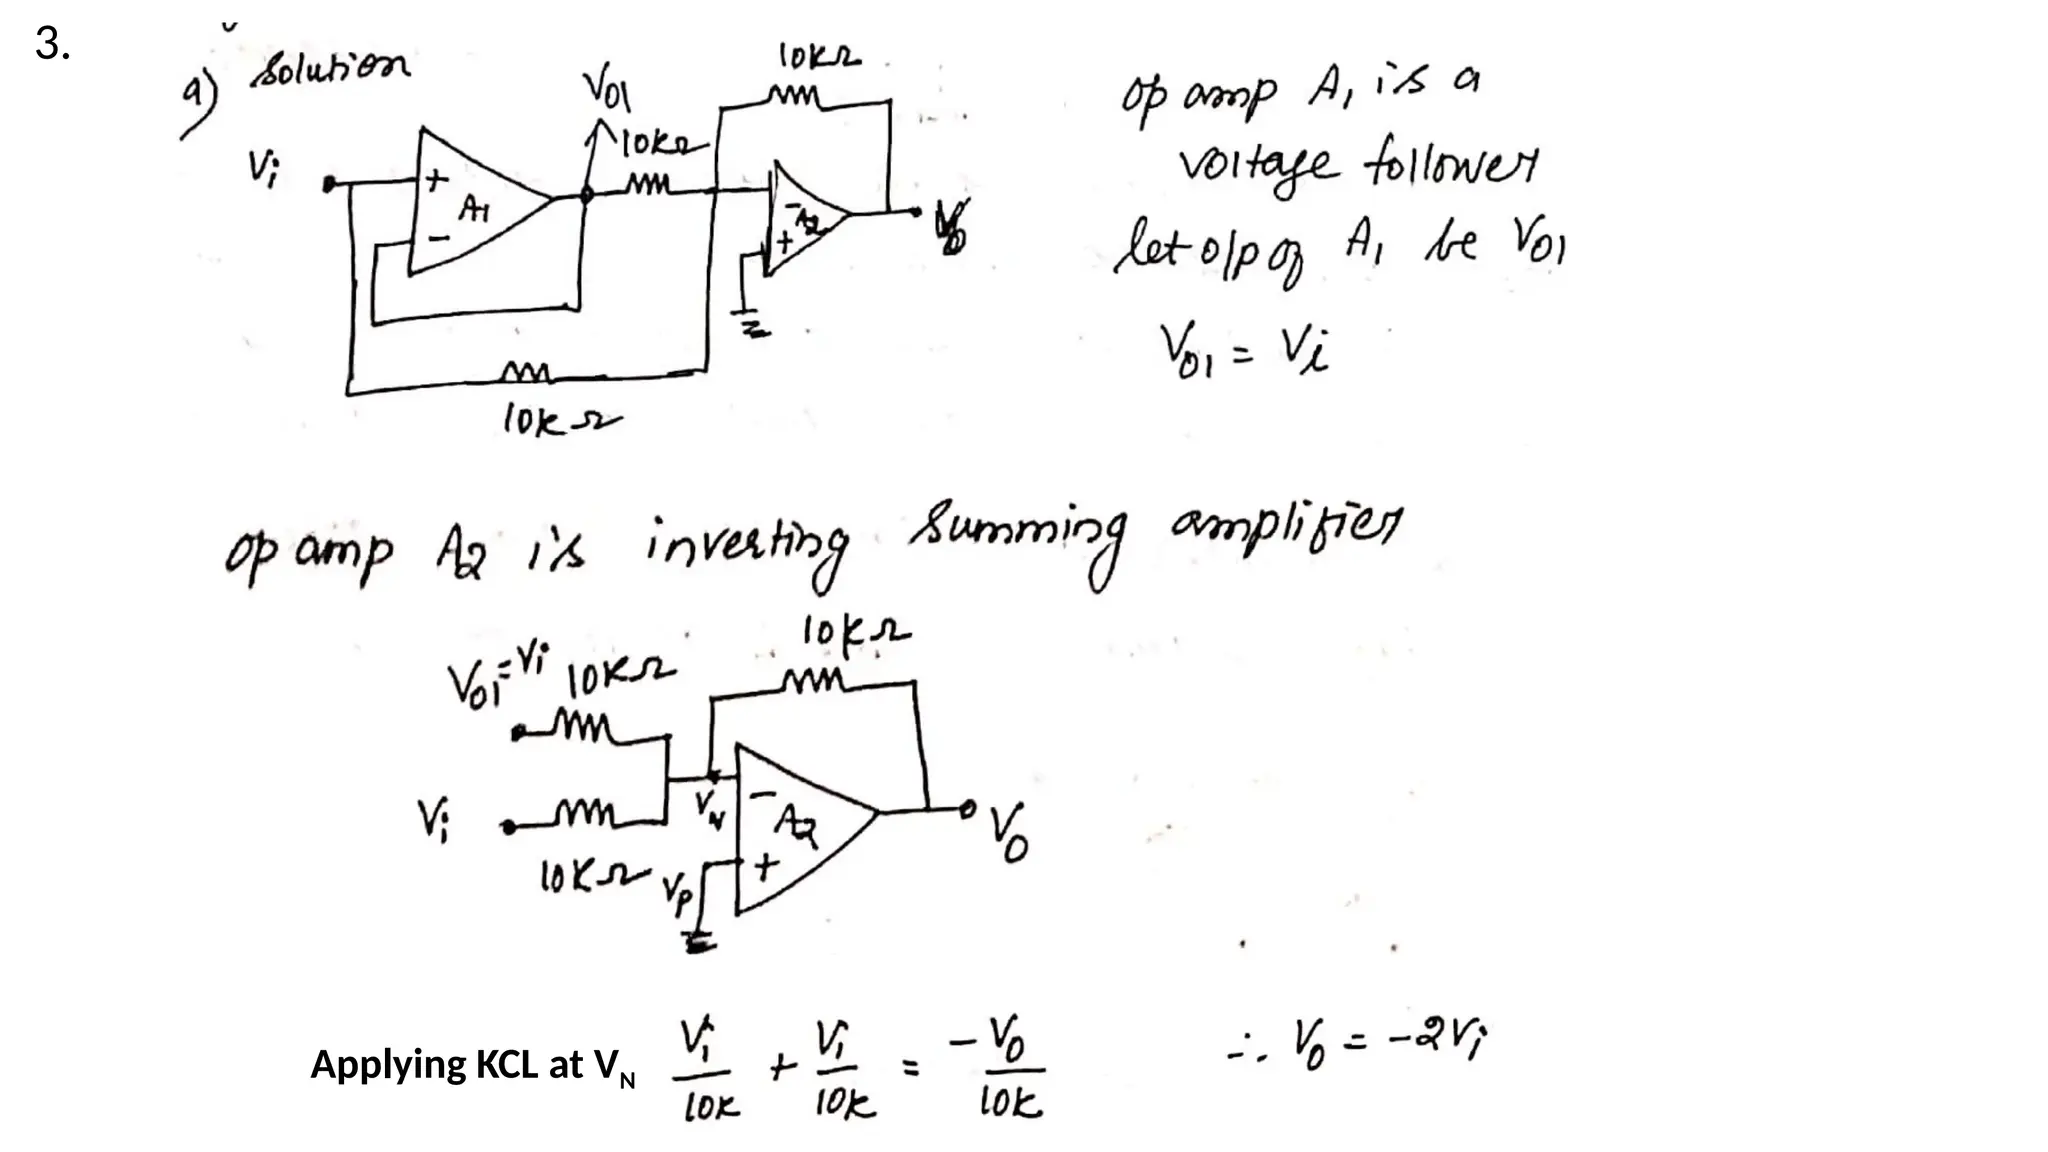 3.
a) Solution
Vi
+
A1
-
V01
10KΩ
10KΩ
-
A2
+
V0
10KΩ
op amp A1 is a
voltage follower
let o/p of A1 be V01
V01 = Vi
op amp A2 is inverting summing amplifier
V01=Vi 10KΩ
10KΩ
Vi
10KΩ
VN
VP
-
A2
+
V0
Applying KCL at VN Vi/10K + Vi/10K = -V0/10K ∴ V0 = -2Vi